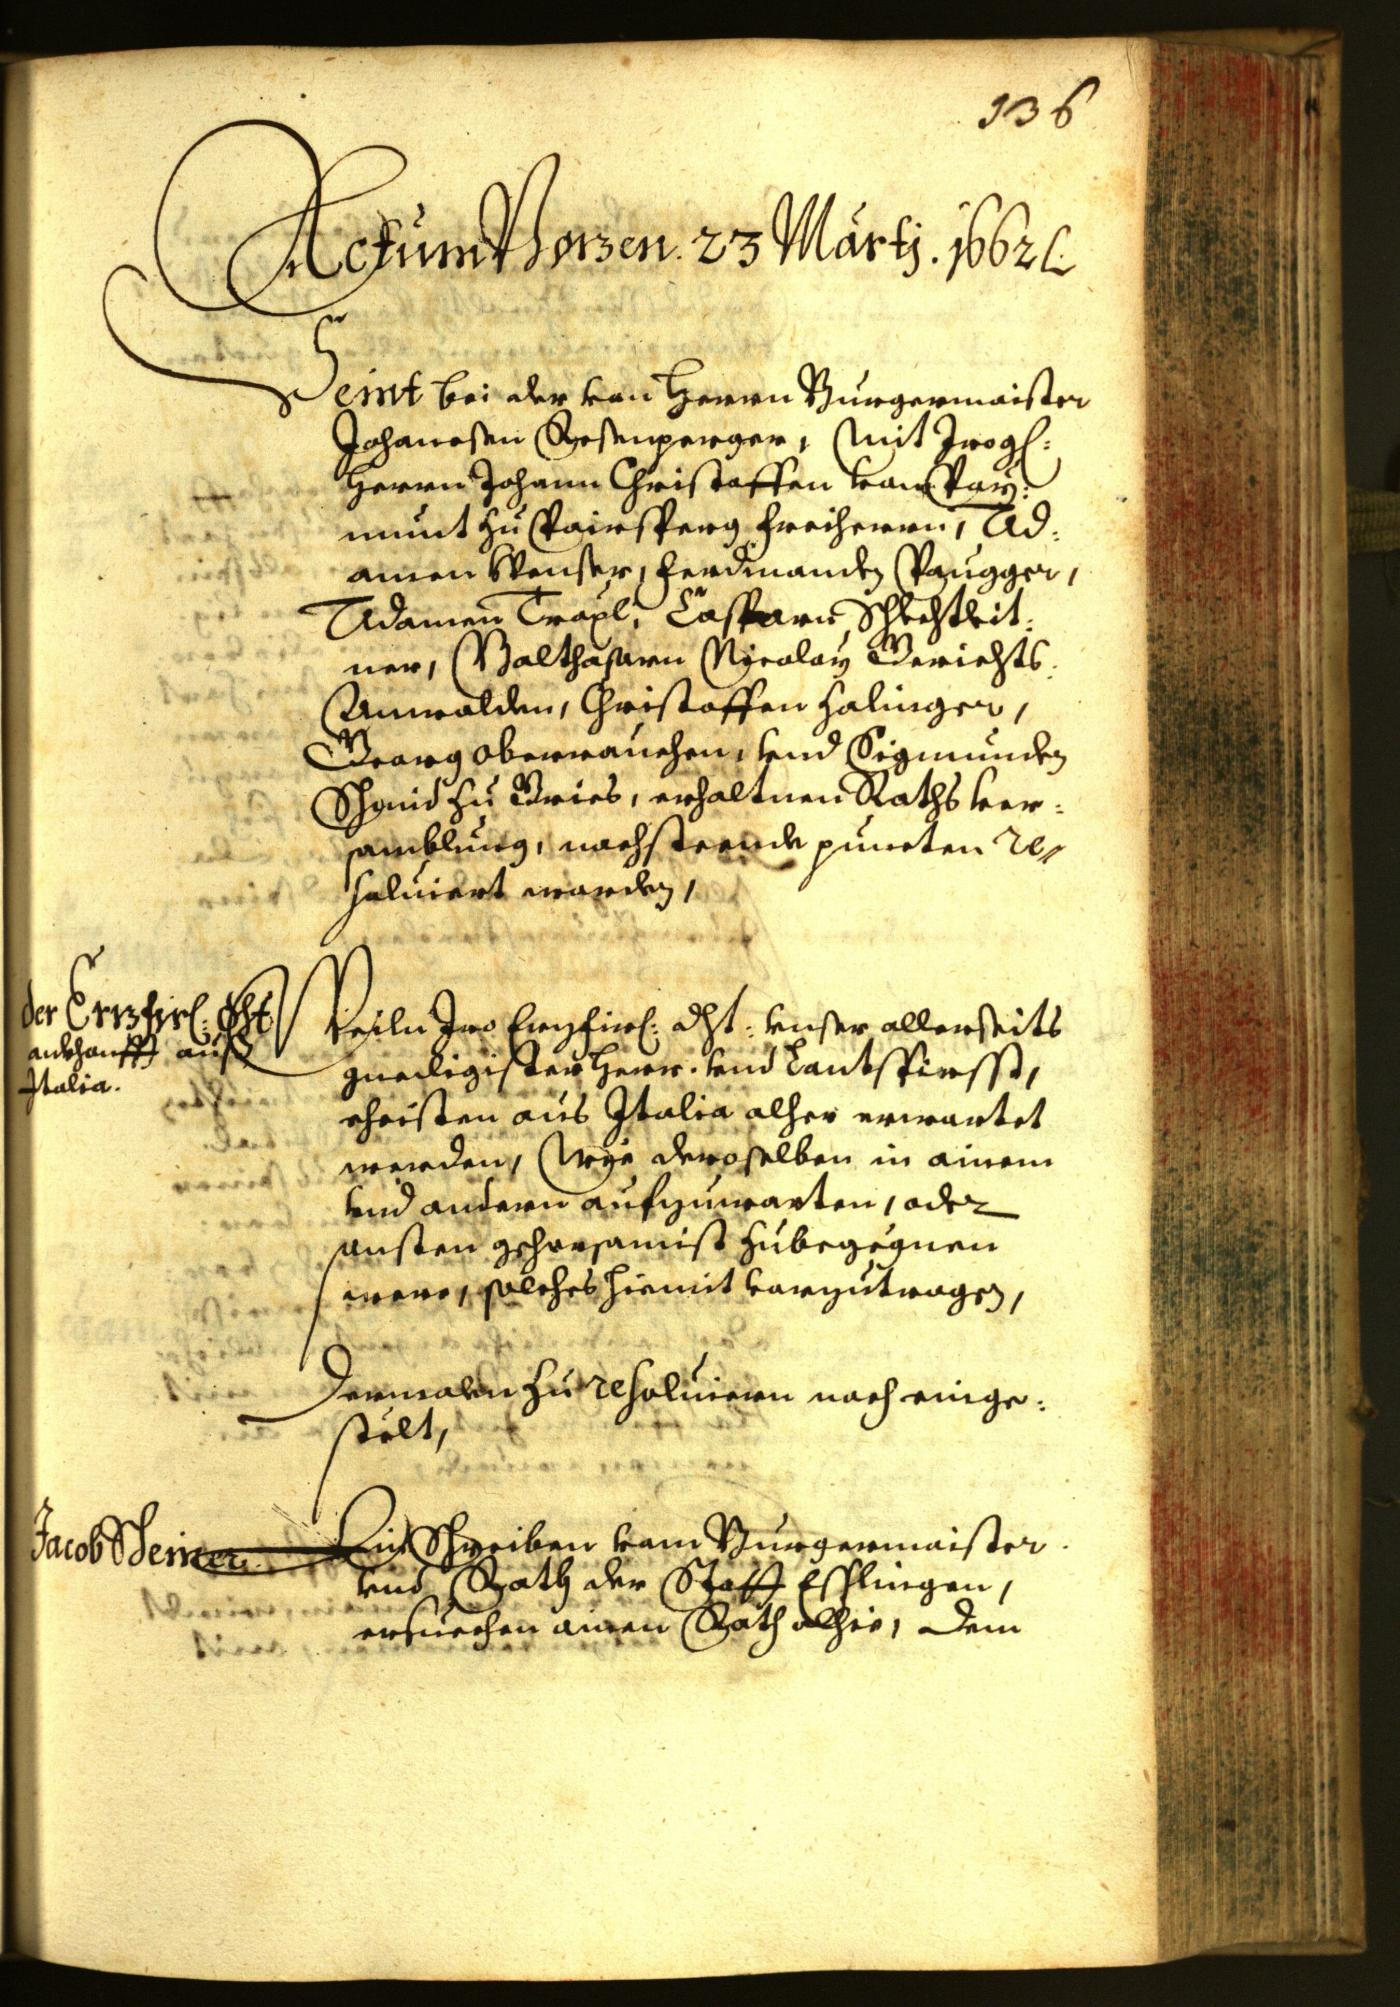 136
Actum Botzen. 23 Marty. 1662
Seint bei der von Herrn Burgermaister
Johannsen Rosenperger, mit
Herrn Johann Christoffen von Pay:
zu Pairsperg Freiherrn, Ad:
amen Wenser, Ferdinanden
Adamen Troyl, Casparn Schlechtleit:
ner, Balthasarn Nicolay Gerichts
Anwalden, Christoffen Halinger,
Georg Oberrauchen, vnd Sigmunden
Schmid zu Gries, erhaltnen Raths ver:
samblung, nachsteende puncten re=
soluiert worden,
der Ertzfirl: Dht
ankhonfft auß
Italia.
Weiln Iro Erzfirl: dht: vnser allerseits
gnedigister Herr vnd Landtsfirsst,
ehisten aus Italia alher erwartet
werden, Wye deroselben in ainem
vnd andern aufzuwarten, oder
sonsten gehorsamist zubegegnen
were, solches hiemit vorzutragen,
Dermalen zu resoluiern noch einge:
stelt,
Jacob Steiner
Ein Schreiben vom Burgermaister
vnd Rath der Statt Esslingen,
ersuechen ainen Rath alhie, dem